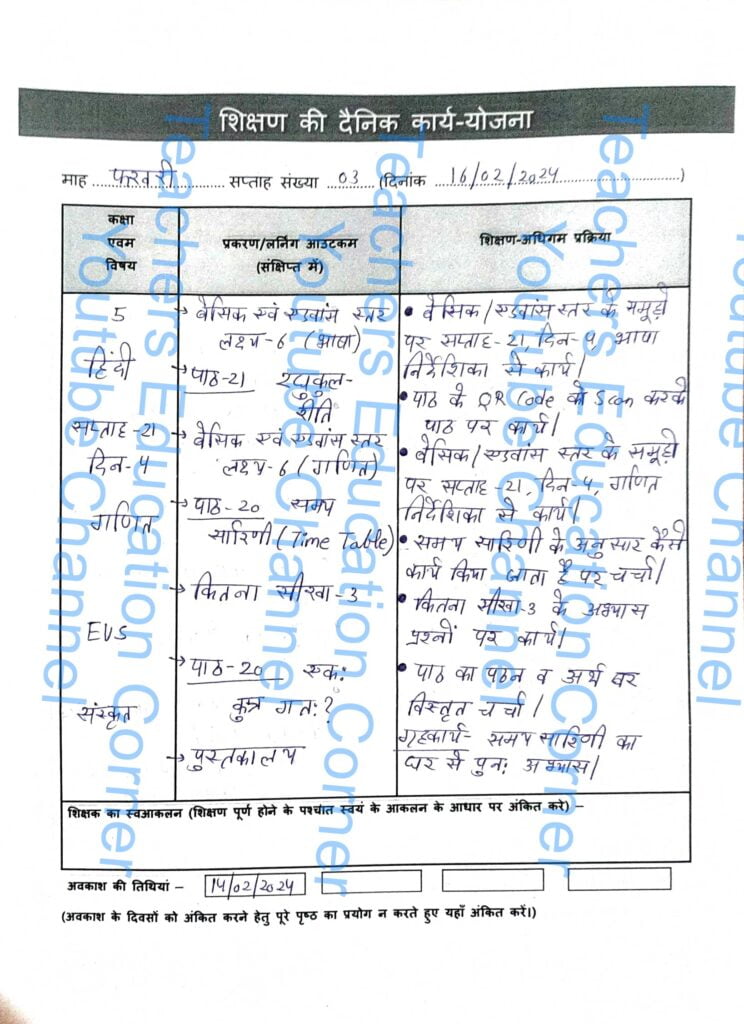 शिक्षण की दैनिक कार्य-योजना
माह फरवरी सप्ताह संख्या 03 (दिनांक 16/02/2024)
कक्षा
एवम
विषय
प्रकरण/लर्निंग आउटकम
(संक्षिप्त में)
शिक्षण-अधिगम प्रक्रिया
5
हिंदी
सप्ताह-21
दिन-4
गणित
EVS
संस्कृत
→ बेसिक एवं एडवांस स्तर
लक्ष्य-6 (भाषा)
→ पाठ-21 रघुकुल-
रीति
→ बेसिक एवं एडवांस स्तर
लक्ष्य-6 (गणित)
→ पाठ-20 समय
सारिणी (Time Table)
→ कितना सीखा-3
→ पाठ-20 एक:
कुत्र गत:?
→ पुस्तकालय
• बेसिक/एडवांस स्तर के समूहों
पर सप्ताह-21, दिन-4, भाषा
निर्देशिका से कार्य।
• पाठ के QR Code को Scan करके
पाठ पर कार्य।
• बेसिक/एडवांस स्तर के समूहों
पर सप्ताह-21, दिन-4, गणित
निर्देशिका से कार्य।
• समय सारिणी के अनुसार कैसे
कार्य किया जाता है पर चर्चा।
• कितना सीखा-3 के अभ्यास
प्रश्नों पर कार्य।
• पाठ का पठन व अर्थ पर
विस्तृत चर्चा।
गृहकार्य- समय सारिणी का
घर से पुन: अभ्यास।
शिक्षक का स्वआकलन (शिक्षण पूर्ण होने के पश्चात स्वयं के आकलन के आधार पर अंकित करें) –
अवकाश की तिथियां – 14/02/2024
(अवकाश के दिवसों को अंकित करने हेतु पूरे पृष्ठ का प्रयोग न करते हुए यहाँ अंकित करें।)
Teachers Education Corner
Youtube Channel
Teachers Education Corner
Youtube Channel
Teachers Education Corner
Youtube Channel